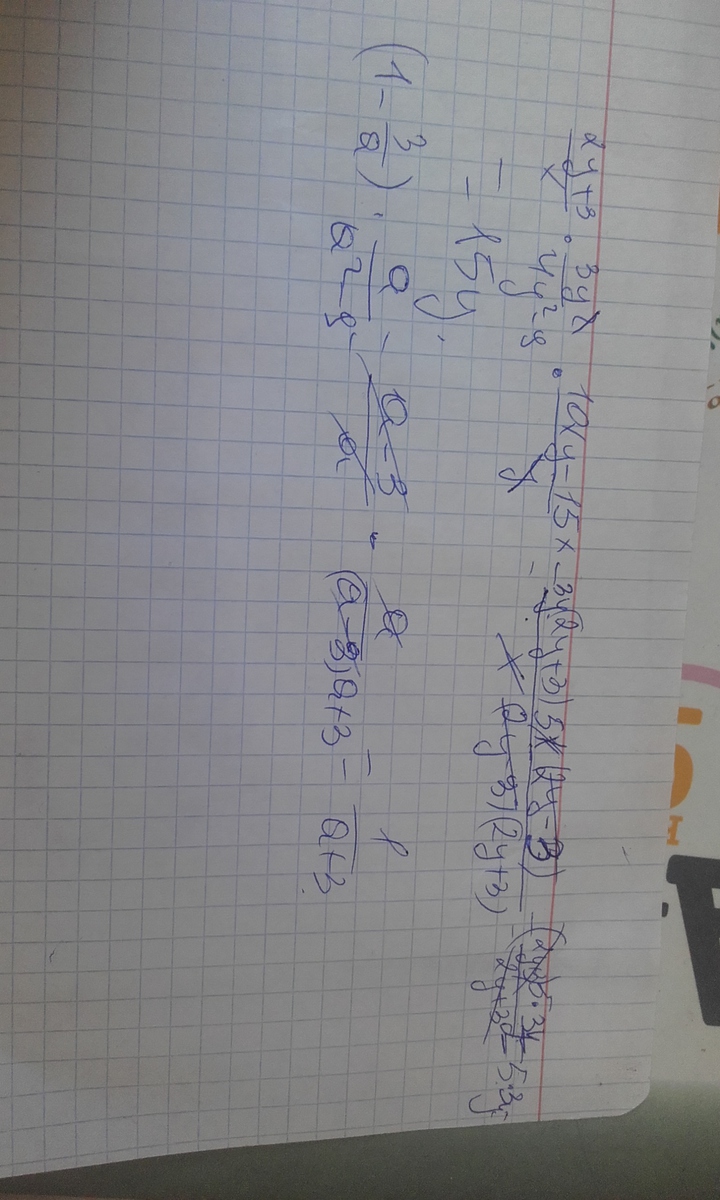 (2y+3)/x · 3yx/(4y²-9) · (10xy-15x)/y = 3y(2y+3)5x(2y-3)/(x(2y-3)(2y+3))
= 15y
(1 - 3/a) · a/(a²-9) = (a-3)/a · a/((a-3)a+3) = 1/(a+3)